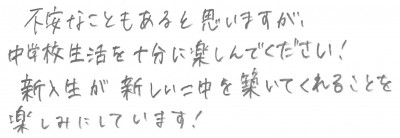 不安なこともあると思いますが、
中学校生活を十分に楽しんでください!
新入生が新しい二中を築いてくれることを
楽しみにしています!